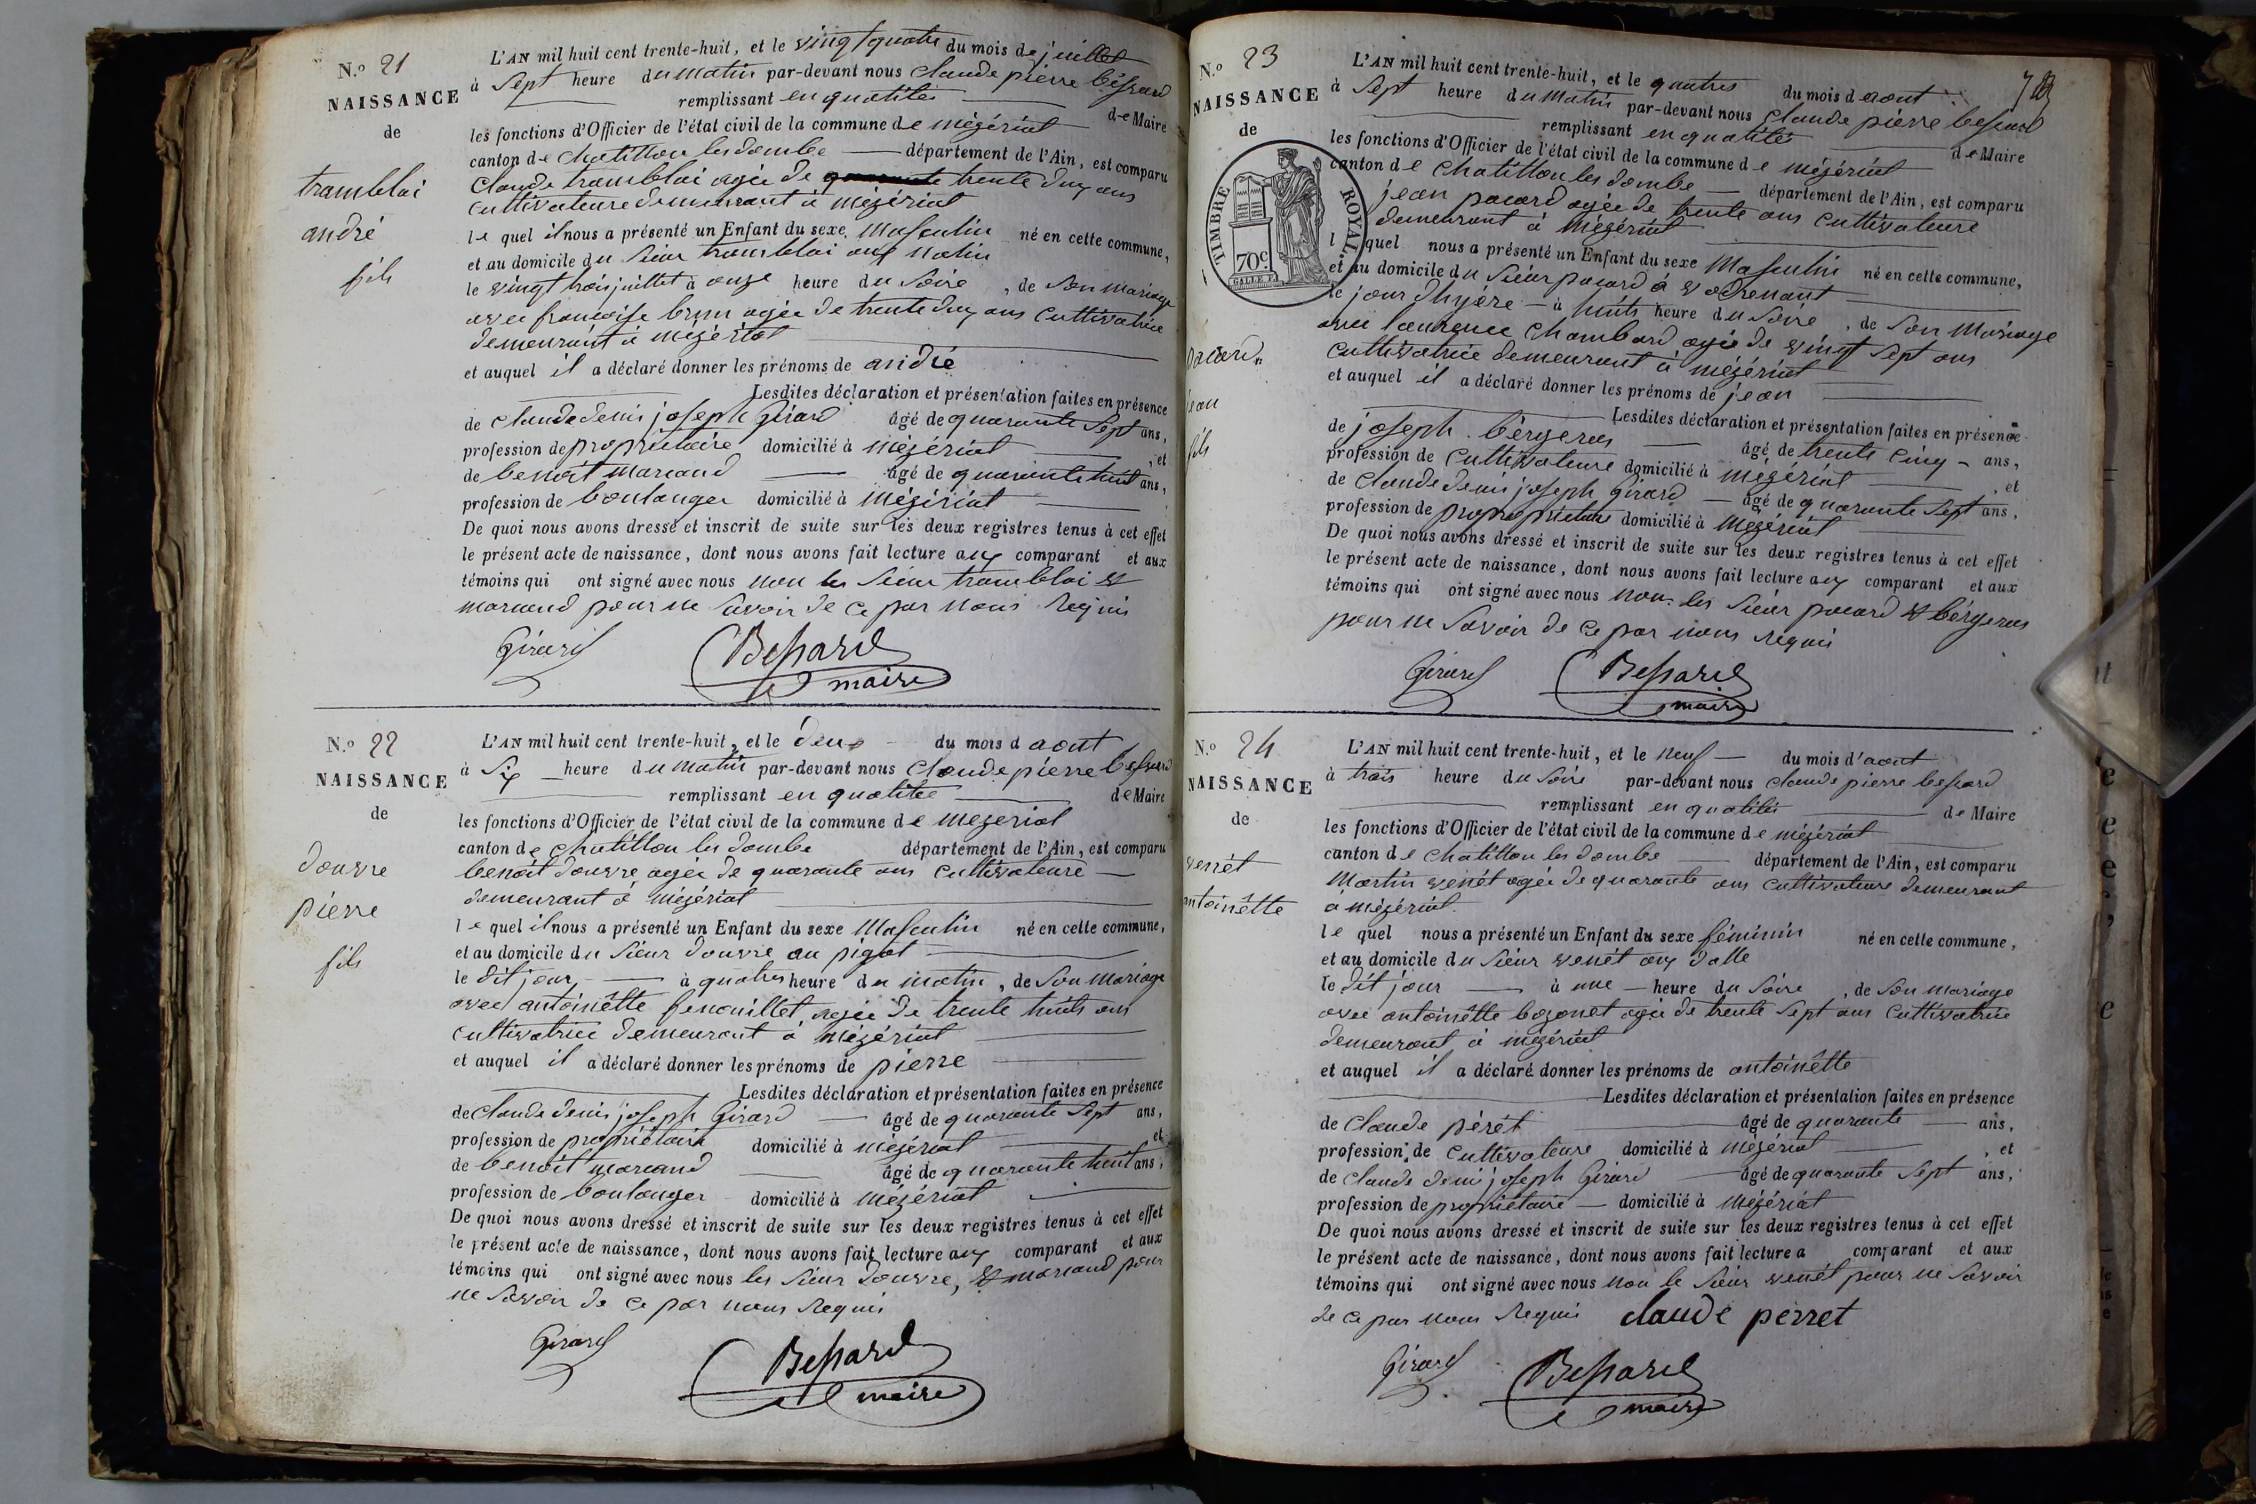 N.o 21
NAISSANCE
de
tramblai
andré
fils
L'AN mil huit cent trente-huit, et le vingt quatre du mois de juillet
à Sept heure du matin par-devant nous Claude pierre bessard
remplissant en qualités de Maire
les fonctions d'Officier de l'état civil de la commune de mézériat
canton de Chatillon les dombe département de l'Ain, est comparu
Claude tramblai agée de trente dux ans
cultivateure demeurant à mézériat
le quel il nous a présenté un Enfant du sexe Masculin né en cette commune,
et au domicile du Sieur tramblai aux
le vingt trois juillet à onze heure du Soire, de Son mariage
avec francoise brun agée de trente dux ans Cultivatrice
demeurant à mézériat
et auquel il a déclaré donner les prénoms de andré
Lesdites déclaration et présentation faites en présence
de Claude denis joseph Girard âgé de quarante Sept ans,
profession de propriétaire domicilié à mézériat, et
de benoit marcand âgé de quarante huit ans,
profession de boulanger domicilié à Mézériat
De quoi nous avons dressé et inscrit de suite sur les deux registres tenus à cet effet
le présent acte de naissance, dont nous avons fait lecture aux comparant et aux
témoins qui ont signé avec nous non les Sieur tramblai et
marcand pour ne Savoir de ce par nous Requis
Girard Bessard
maire
N.o 22
NAISSANCE
de
douvre
pierre
fils
L'AN mil huit cent trente-huit, et le deux du mois d aout
à Six heure du matin par-devant nous Claude pierre bessard
remplissant en qualitée de Maire
les fonctions d'Officier de l'état civil de la commune de mezeriat
canton de chatillon les dombe département de l'Ain, est comparu
benoit douvre agée de quarante ans Cultivateure
demeurant à mézériat
le quel il nous a présenté un Enfant du sexe Masculin né en cette commune,
et au domicile du Sieur douvre au
le dit jour à quatres heure du matin, de Son mariage
avec antoinêtte fenouillet agée de trente huits ans
cultivatrice demeurant à mézériat
et auquel il a déclaré donner les prénoms de pierre
Lesdites déclaration et présentation faites en présence
de Claude denis joseph Girard âgé de quarante Sept ans,
profession de propriétaire domicilié à mézériat et
de benoit marcand âgé de quarante huit ans,
profession de boulanger domicilié à Mézériat
De quoi nous avons dressé et inscrit de suite sur les deux registres tenus à cet effet
le présent acte de naissance, dont nous avons fait lecture aux comparant et aux
témoins qui ont signé avec nous les Sieur douvre, et marcand pour
ne Savoir de ce par nous Requis
Girard Bessard
maire
N.o 23
NAISSANCE
de
pacard
jean
fils
TIMBRE ROYAL
70c
L'AN mil huit cent trente-huit, et le quatres du mois d aout
à Sept heure du Matin par-devant nous Claude pierre bessard
remplissant en qualités de Maire
les fonctions d'Officier de l'état civil de la commune de mézériat
canton de Chatillon les dombe département de l'Ain, est comparu
jean pacard agée de trente ans Cultivateure
demeurant à Mézériat
l quel nous a présenté un Enfant du sexe Masculin né en cette commune,
et au domicile du Sieur pacard à
le jour d'hyére à huits heure du Soire, de Son Mariage
avec laurence Chambard agée de vingt Sept ans
Cultivatrice demeurant à mézériat
et auquel il a déclaré donner les prénoms de jean
Lesdites déclaration et présentation faites en présence
de joseph bérgeras âgé de trente Cinq ans,
profession de Cultivateure domicilié à mézériat, et
de Claude denis joseph Girard âgé de quarante Sept ans,
profession de domicilié à Mézériat
De quoi nous avons dressé et inscrit de suite sur les deux registres tenus à cet effet
le présent acte de naissance, dont nous avons fait lecture aux comparant et aux
témoins qui ont signé avec nous non les Sieur pacard et bérgeras
pour ne Savoir de ce par nous Requis
Girard Bessard
maire
N.o 24
NAISSANCE
de
venét
antoinêtte
L'AN mil huit cent trente-huit, et le neuf du mois d'aout
à trois heure du Soire par-devant nous Claude pierre bessard
remplissant en qualités de Maire
les fonctions d'Officier de l'état civil de la commune de mézériat
canton de Chatillon les dombe département de l'Ain, est comparu
Martin venét agée de quarante ans Cultivateure demeurant
a mézériat.
le quel nous a présenté un Enfant du sexe féminin né en cette commune,
et au domicile du Sieur venét aux
le dit jour à une heure du Soire, de Son mariage
avec antoinêtte bozonet agée de trente Sept ans Cultivatrice
demeurant à mézériat
et auquel il a déclaré donner les prénoms de antoinêtte
Lesdites déclaration et présentation faites en présence
de Claude pérét âgé de quarante ans,
profession de Cultivateure domicilié à mézériat, et
de Claude denis joseph Girard âgé de quarante Sept ans,
profession de propriétaire domicilié à Mézériat
De quoi nous avons dressé et inscrit de suite sur les deux registres tenus à cet effet
le présent acte de naissance, dont nous avons fait lecture a comparant et aux
témoins qui ont signé avec nous non le Sieur venét pour ne Savoir
de ce par nous Requis claude pérret
Girard Bessard
maire